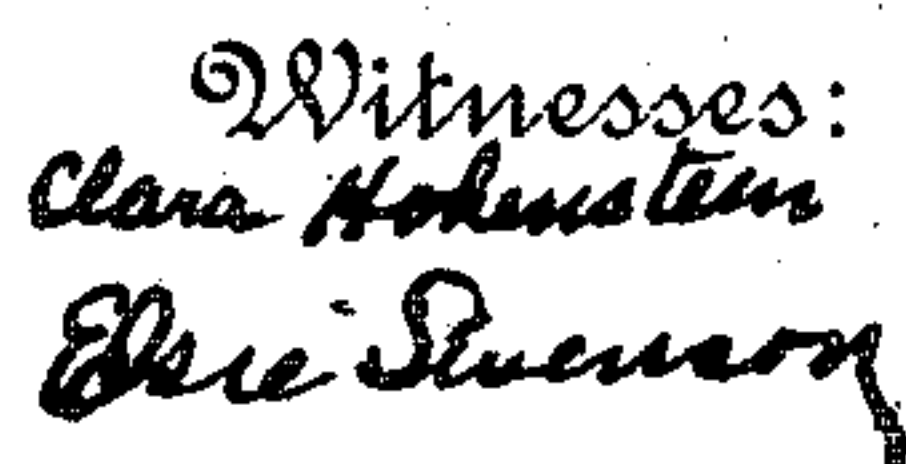 Witnesses:
Clara Hohenstein
Elsie Swenson